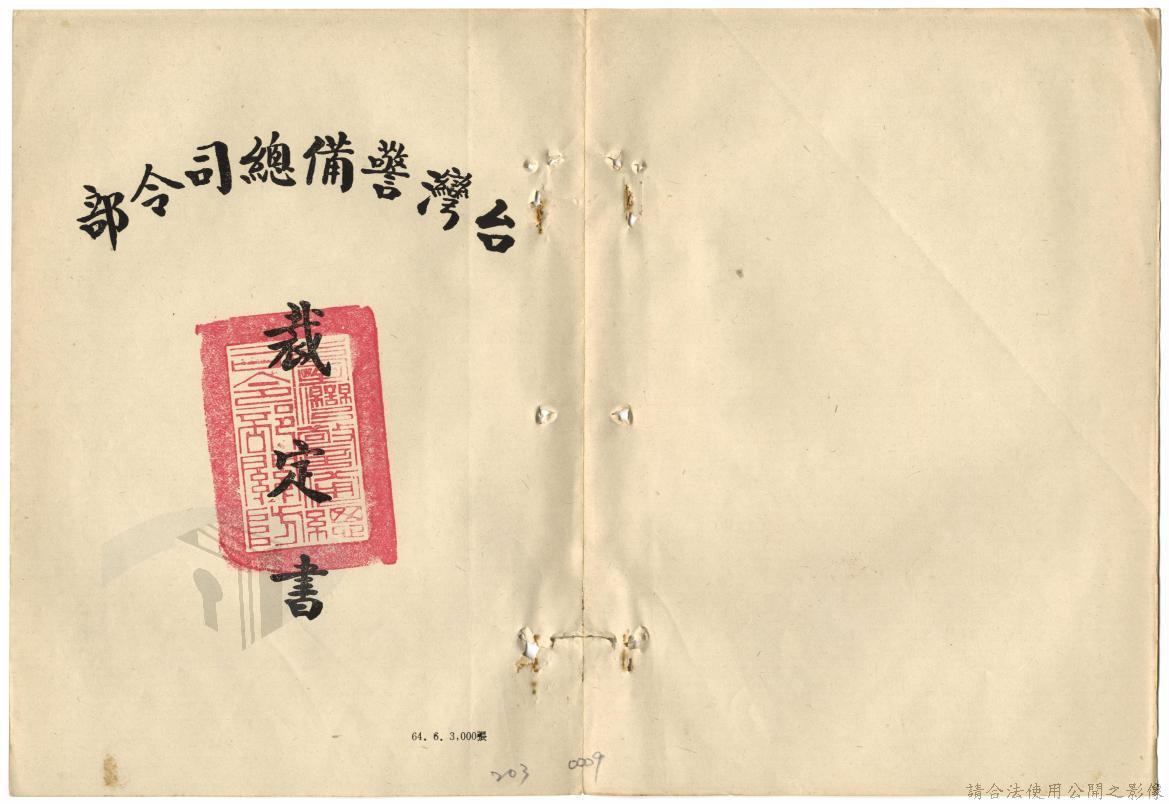 台灣警備總司令部
裁定書
64. 6. 3,000張
203 0009
請合法使用公開之影像